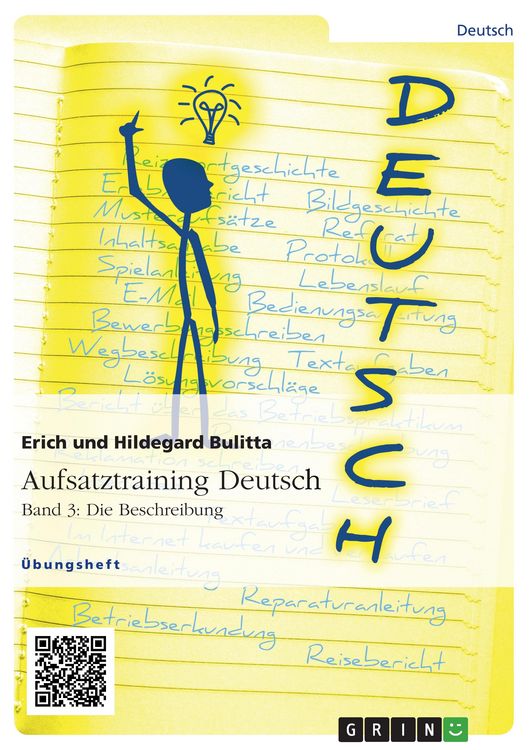 Deutsch
DEUTSCH
Reizwortgeschichte
Bildgeschichte
Musteraufsätze
Referat
Inhaltsangabe
Protokoll
Spielanleitung
Lebenslauf
E-Mail
Bedienungsanleitung
Bewerbungsschreiben
Wegbeschreibung Textaufgaben
Lösungsvorschläge
Bericht über das Betriebspraktikum
Erich und Hildegard Bulitta
Reklamation schreiben
Aufsatztraining Deutsch
Leserbrief
Band 3: Die Beschreibung
Im Internet kaufen und
Übungsheft
Reparaturanleitung
Betriebserkundung
Reisebericht
GRIN